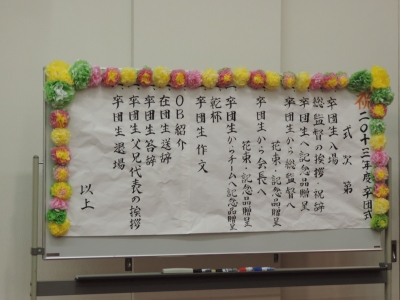 祝 二〇十三年度卒団式
式次第
一、卒団生入場
一、総監督の挨拶・祝辞
一、卒団生へ記念品贈呈
一、卒団生から総監督へ
花束・記念品贈呈
一、卒団生から会長へ
花束・記念品贈呈
一、卒団生からチームへ記念品贈呈
一、乾杯
一、卒団生作文
一、OB紹介
一、在団生送辞
一、卒団生答辞
一、卒団生父兄代表の挨拶
一、卒団生退場
以上